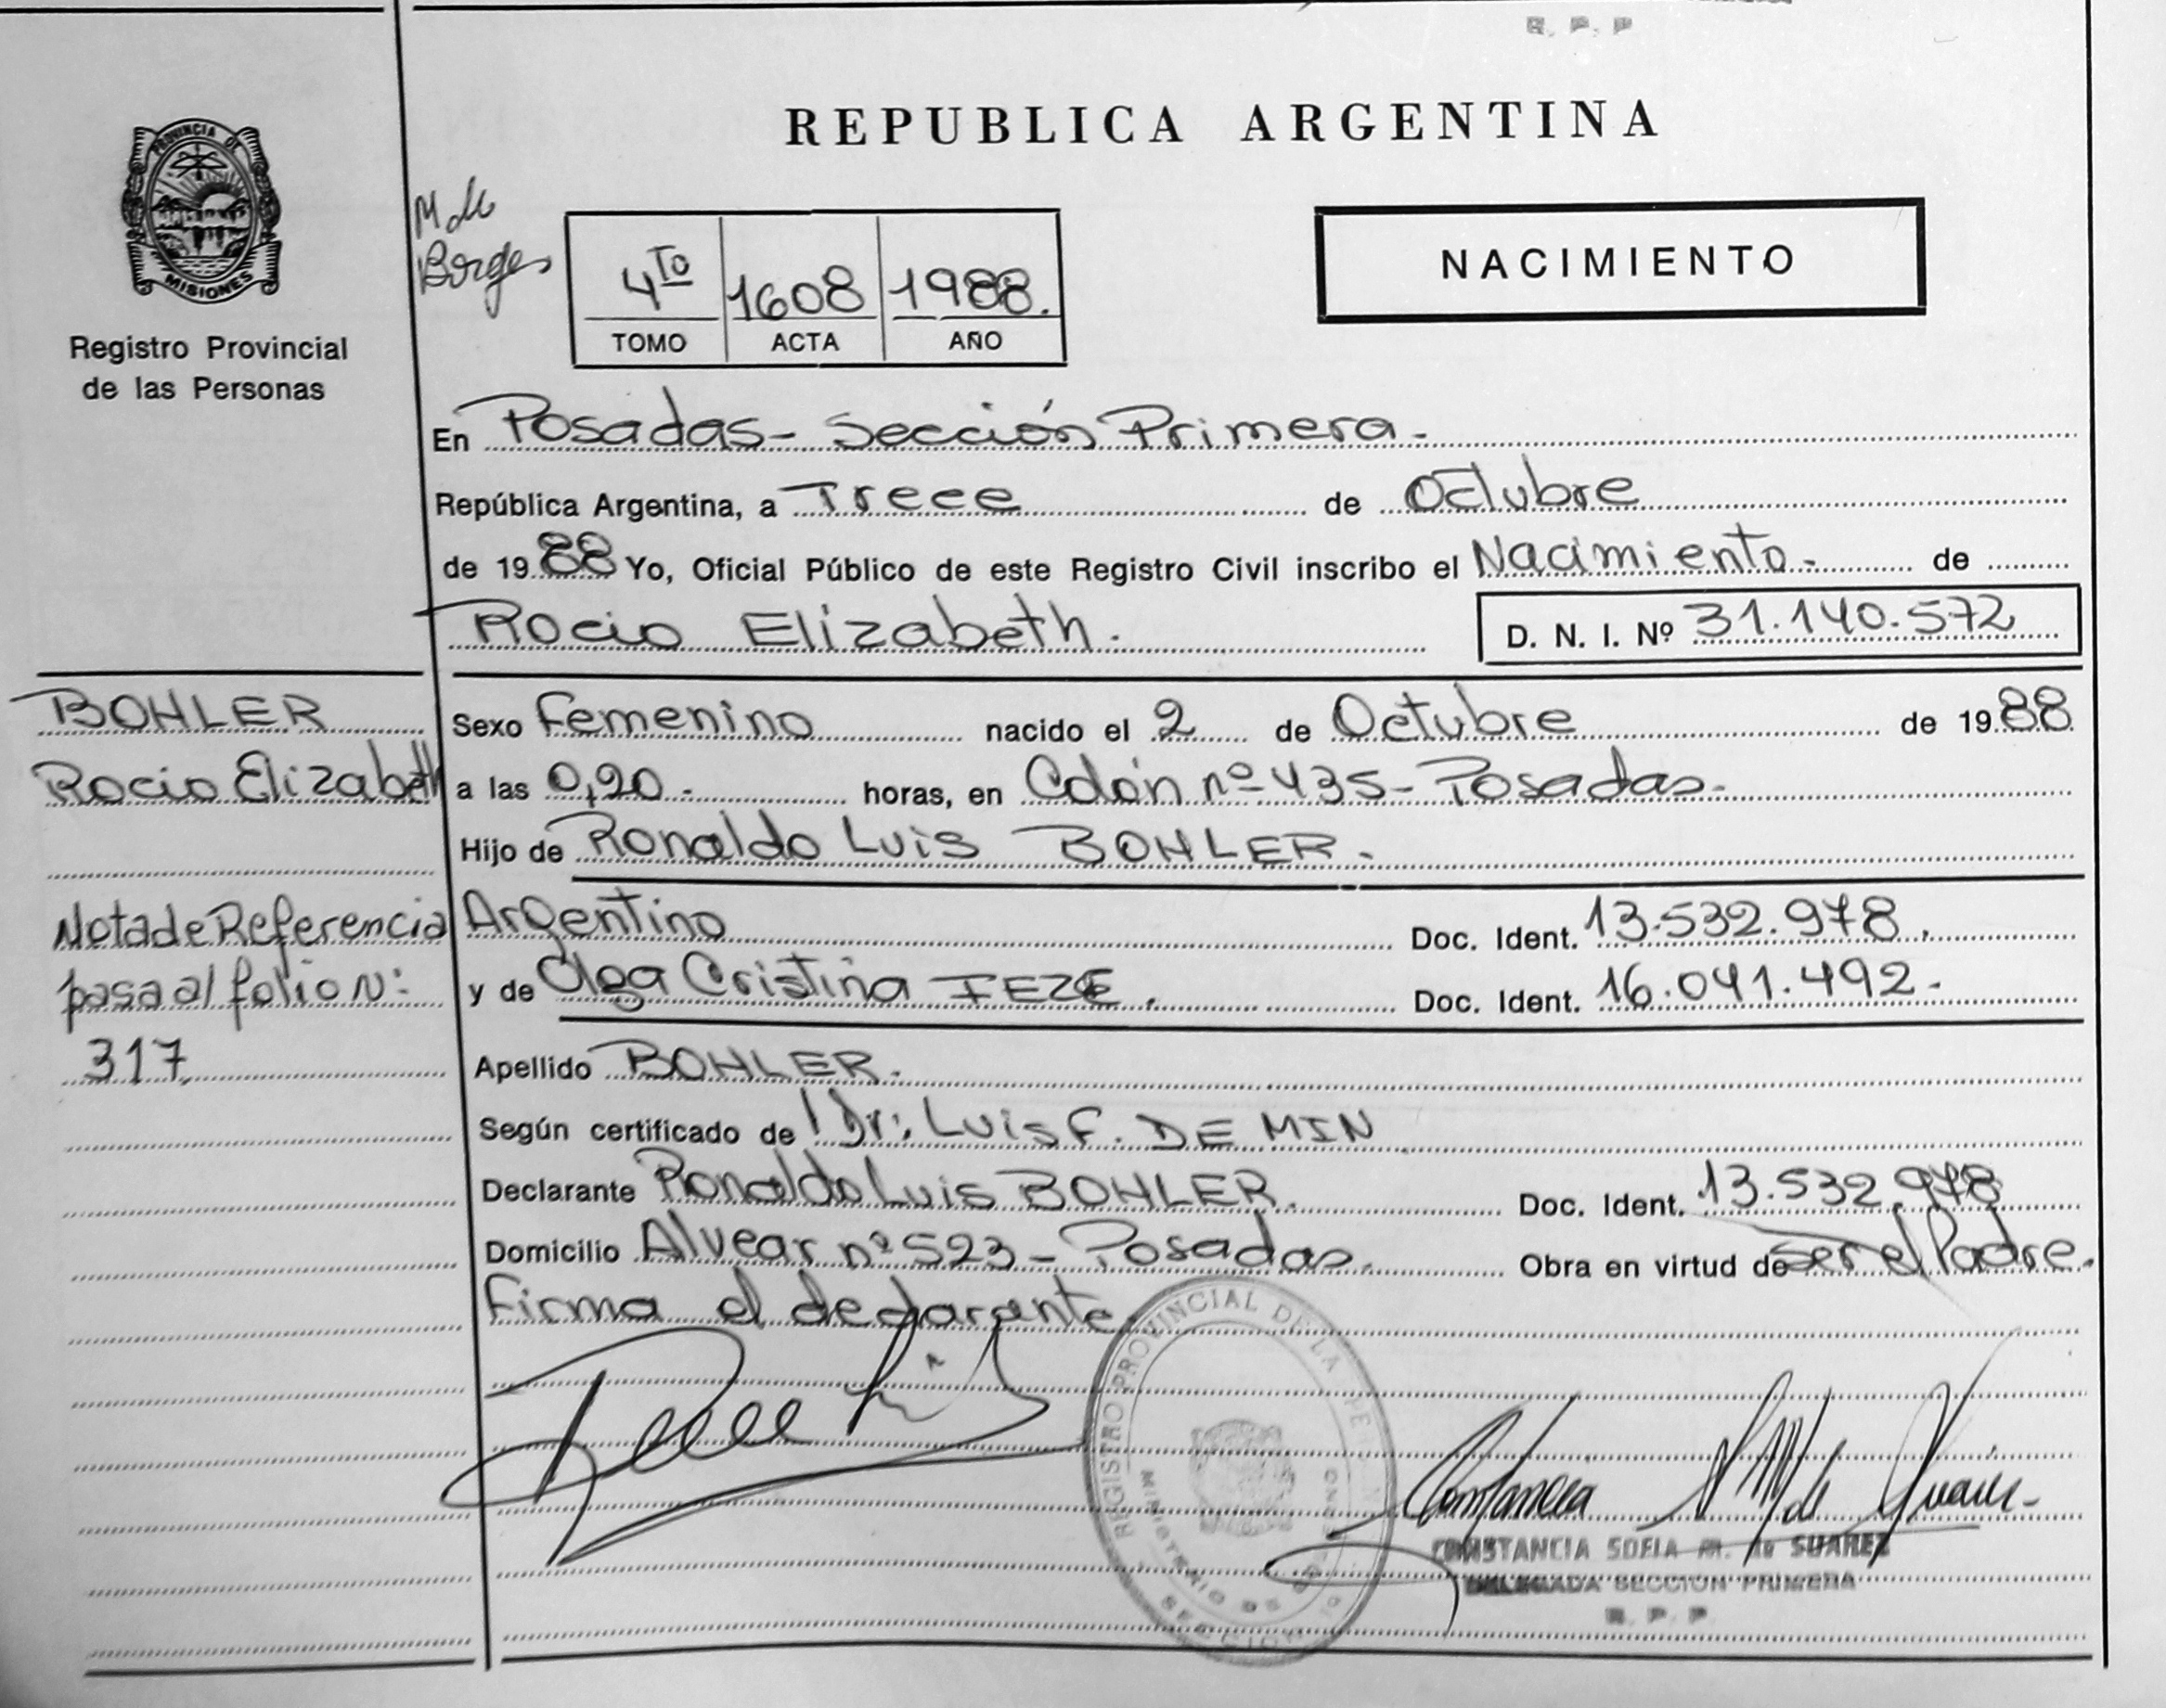 R. P. P
PROVINCIA DE
MISIONES
Registro Provincial
de las Personas
REPUBLICA ARGENTINA
M de
Borges
4to 1608 1988.
TOMO ACTA AÑO
NACIMIENTO
En Posadas - Sección Primera -
República Argentina, a Trece de Octubre
de 1988 Yo, Oficial Público de este Registro Civil inscribo el Nacimiento - de
Rocio Elizabeth. D. N. I. Nº 31.140.572
BOHLER
Rocio Elizabeth
Nota de Referencia
pasa al folio N:
317
Sexo Femenino nacido el 2 de Octubre de 1988
a las 0,20 - horas, en Colón nº 435 - Posadas -
Hijo de Ronaldo Luis BOHLER -
Argentino Doc. Ident. 13.532.978.
y de Olga Cristina Doc. Ident. 16.041.492 -
Apellido BOHLER -
Según certificado de Dr: Luis F. DE MIN
Declarante Ronaldo Luis BOHLER. Doc. Ident. 13.532.978
Domicilio Alvear nº 523 - Posadas. Obra en virtud de ser el Padre.
Firma el declarante
REGISTRO PROVINCIAL DE LA
MINISTERIO DE
SECCION
Constancia M de Suárez
CONSTANCIA SOFIA M. de SUAREZ
DELEGADA SECCION PRIMERA
R. P. P.